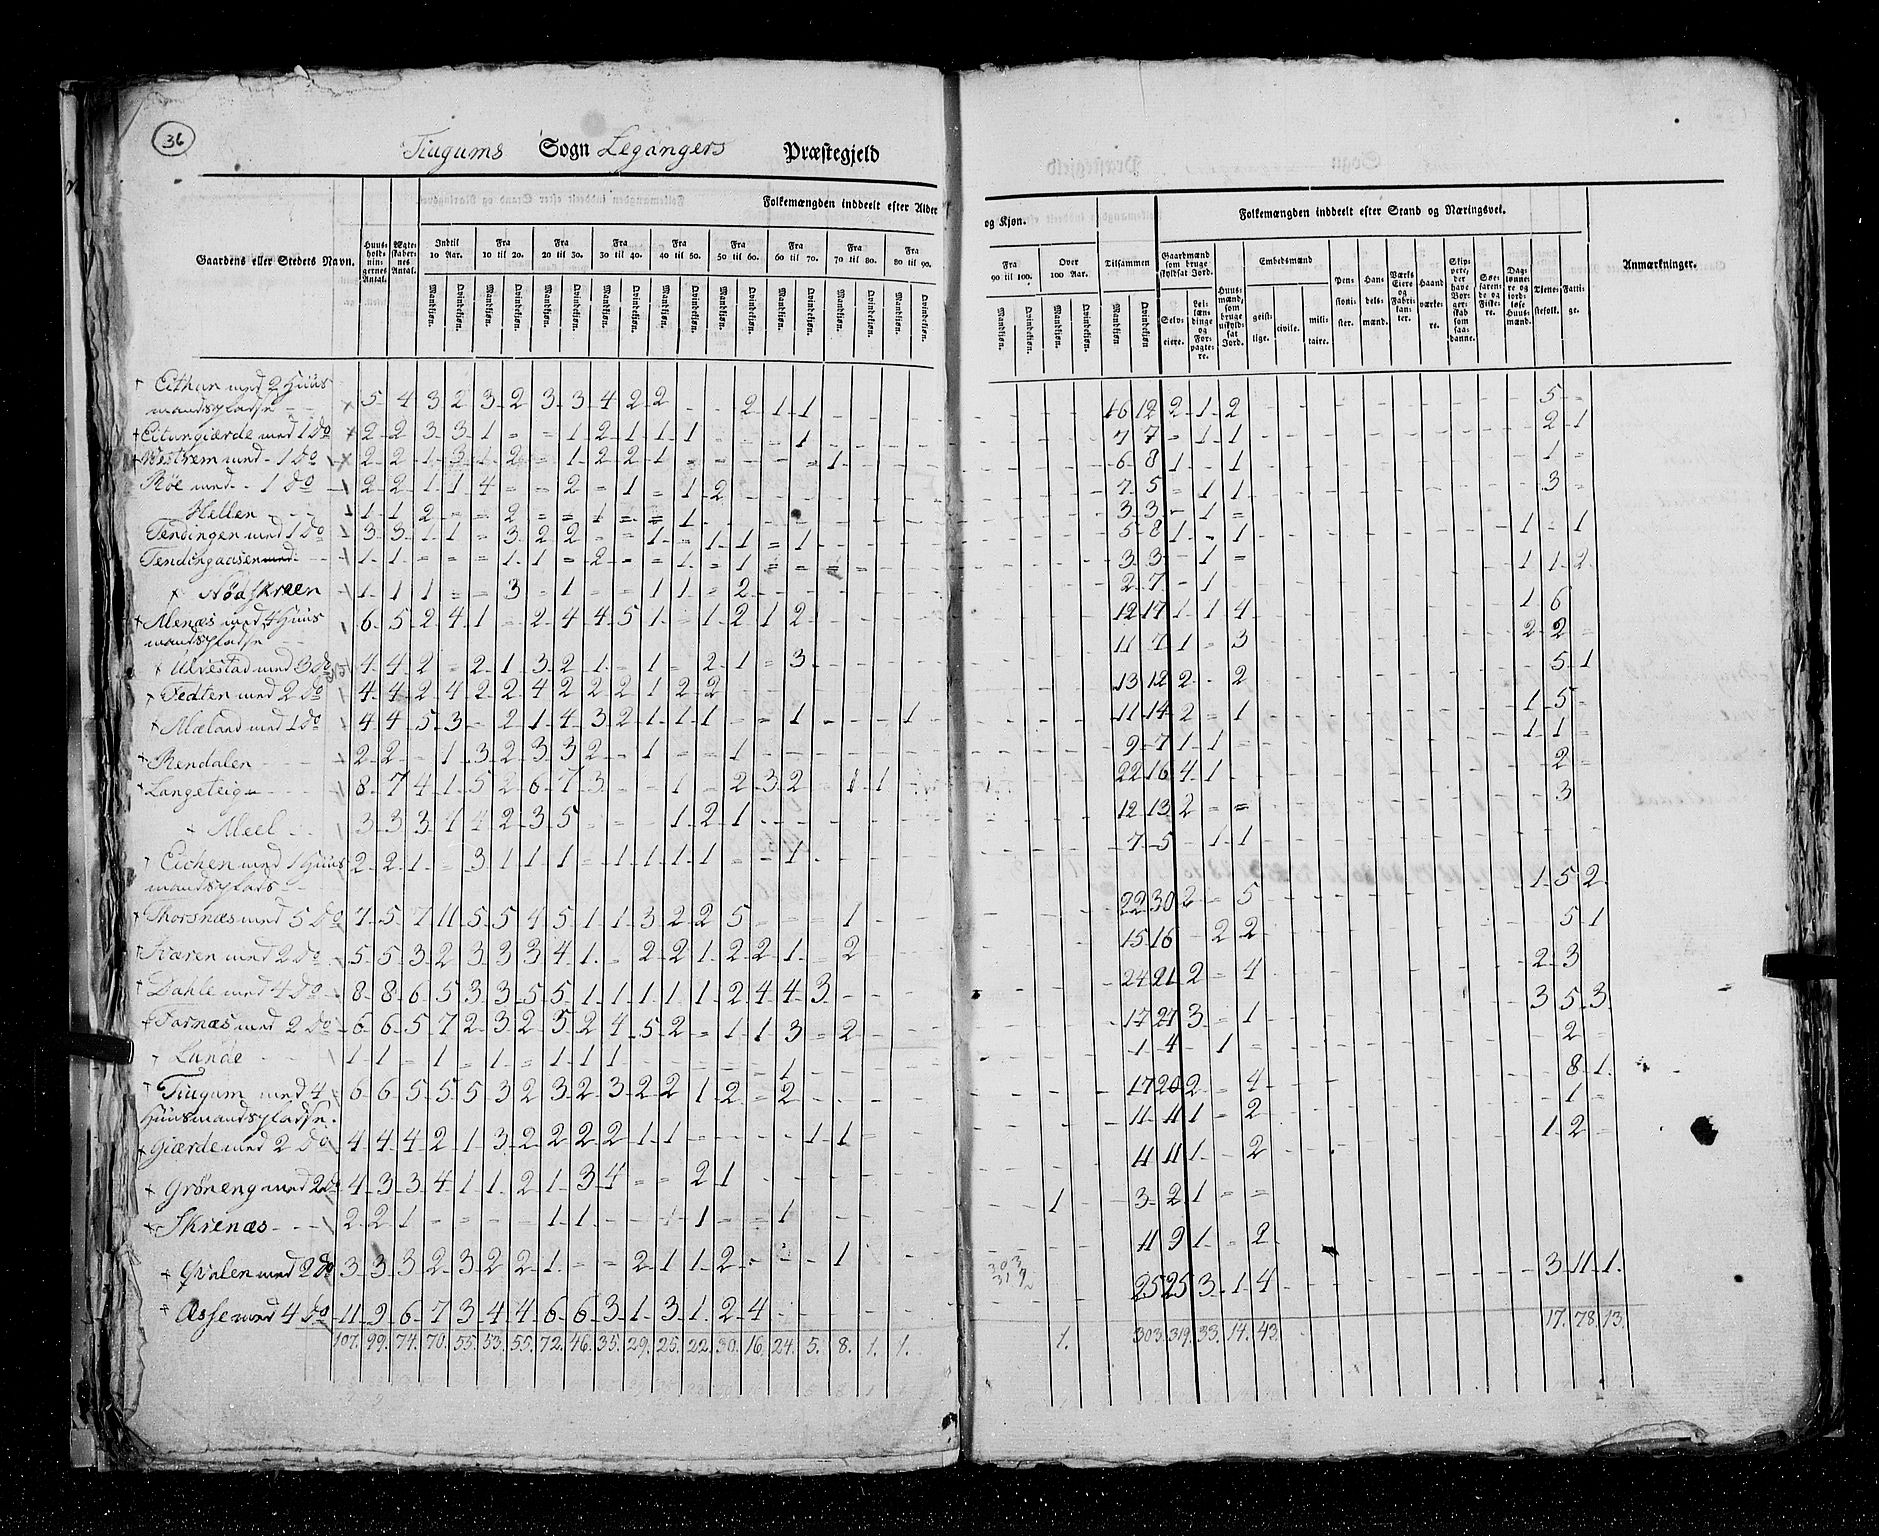 36
Tiugums Sogn Legangers Præstegjeld
Gaardens eller Stedets Navn.
Huus-holdnin-gernes Antal.
Ægte-skaber-nes Antal.
Folkemængden inddeelt efter Alder og Kjøn.
Indtil 10 Aar.
Fra 10 til 20.
Fra 20 til 30.
Fra 30 til 40.
Fra 40 til 50.
Fra 50 til 60.
Fra 60 til 70.
Fra 70 til 80.
Fra 80 til 90.
Fra 90 til 100.
Over 100 Aar.
Tilsammen
Mandkjøn. Qvindekjøn.
Folkemængden inddeelt efter Stand og Næringsvei.
Gaardmænd som bruge skyldsat Jord.
Selv-eiere.
Lei-læn-dinge og For-pagte-re.
Huus-mænd, som bruge uskyld-sat Jord.
Embedsmænd
geist-lige.
civile.
mili-taire.
Pen-sioni-ster.
Han-dels-mænd.
Værks Eiere og Fabri-kan-ter.
Haand værke-re.
Skip-pere, der have Bor-ger-skab som saa-danne.
Søe-farende og Fiske-
Dag-lønne-re og jord-løse Huus-mænd.
Tjene-stefolk.
Fatti-ge.
Anmærkninger.
Eithun med 2 Huus
mandspladse 5 4 3 2 3 2 3 3 4 2 2 - - 2 1 1 16 12 2 1 2 5
Eitungiærde med 1 do 2 2 3 3 1 = = 1 2 1 1 1 1 7 7 = 1 1 2 1
Westrem med 1 do 2 2 1 3 1 2 = 1 2 2 1 1 6 8 1 - 1 1
Røe med 1 do 2 2 1 1 4 = = 2 = 1 = 1 2 7 5 = 1 1 3
Hellen 1 1 2 = = 2 = = 1 = = 1 3 3 - 1 =
Tendingen med 1 do 3 3 1 1 = 3 2 2 = = 1 = 1 1 = 1 5 8 1 - 1 1 - 1
Tendingaasen 1 1 = = = 1 1 = 2 = = 1 = 1 3 3 - 1 = 1 1 2
Nødskreen 1 1 1 = = 3 = 1 = = 1 1 = 2 2 7 - 1
Menæs med 4 Huus
mandspladse 6 5 2 4 1 - 2 4 4 5 1 = 1 2 1 2 12 17 1 1 4 1 6
Ulvestad med 3 do 4 4 2 = 2 1 3 2 1 = 1 = 2 1 = 3 11 7 1 = 3 2 2
Fedten med 2 do 4 4 2 4 2 2 4 2 2 2 1 2 2 13 12 2 - 2 5 1
Mæland med 1 do 4 4 5 3 - 2 1 4 3 2 1 1 1 - = 1 - - - 1 11 14 2 = 1 1 5
Rendalen 2 2 - 1 3 2 3 3 2 - 1 = = 1 9 7 1 1 = 1 1
Langeteig 8 7 4 1 5 2 6 7 3 - - 1 - 2 3 2 - 1 1 22 16 4 1 2
Meel 3 3 3 1 4 2 3 5 - - - 1 2 1 12 13 2 = = 3
Eichen med 1 Huus
mandsplads 2 2 1 = 3 1 1 1 = 1 1 1 1 = = 1 7 5 - 1 1
Thorsnæs med 5 do 7 5 7 11 5 5 4 5 1 1 3 2 2 5 - - - 1 22 30 2 = 5 1 5 2
Næren med 2 do 5 5 3 2 3 3 3 4 1 - 2 2 1 2 2 1 - 2 15 16 - 2 2 5 1
Dahle med 4 do 8 8 6 5 3 3 5 5 1 1 1 1 1 2 4 4 3 24 21 2 = 4 2 3
Farnæs med 2 do 6 6 5 7 2 3 2 5 2 4 5 2 = 1 1 3 = 2 17 27 3 = 1 3 5 3
Lunde 1 1 = 1 = 1 = 1 1 1 1 1 4 - 1 = 2
Tiugum med 4
Huusmandspladse. 6 6 5 5 5 3 2 3 2 3 2 2 1 2 = 2 17 20 2 = 4 8 1
Giærde med 2 do 4 4 4 2 1 3 2 2 2 2 1 1 - - - - 1 1 11 11 1 = 2 1
Grøneng med 2 do 4 3 3 4 1 1 2 1 3 4 = = 2 1 11 11 1 - 2 1 2
Skrenæs 2 2 1 = = - - 1 1 - - 1 1 = = 1 1 3 2 1 = =
Qvalen med 2 do 3 3 3 2 3 2 2 1 = = 2 1 1 2 - - - 1 11 9 1 - 2
Asse med 4 do 11 9 6 7 3 4 4 6 6 3 1 3 1 2 4 25 25 3 1 4 3 11 1
107. 99. 74. 70. 55. 53. 55. 72. 46. 35. 29. 25. 22. 30. 16. 24. 5. 8. 1. 1. 1. 303. 319. 33. 14. 43. 17. 78. 13.
303
319